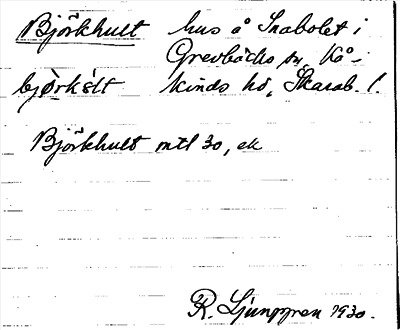 Björkhult hus å Snabolet i
Grevbäcks sn, Kå-
bjørkə̀lt kinds hd, Skarab. l.
Björkhult mtl 30, ek
R. Ljunggren 1930.